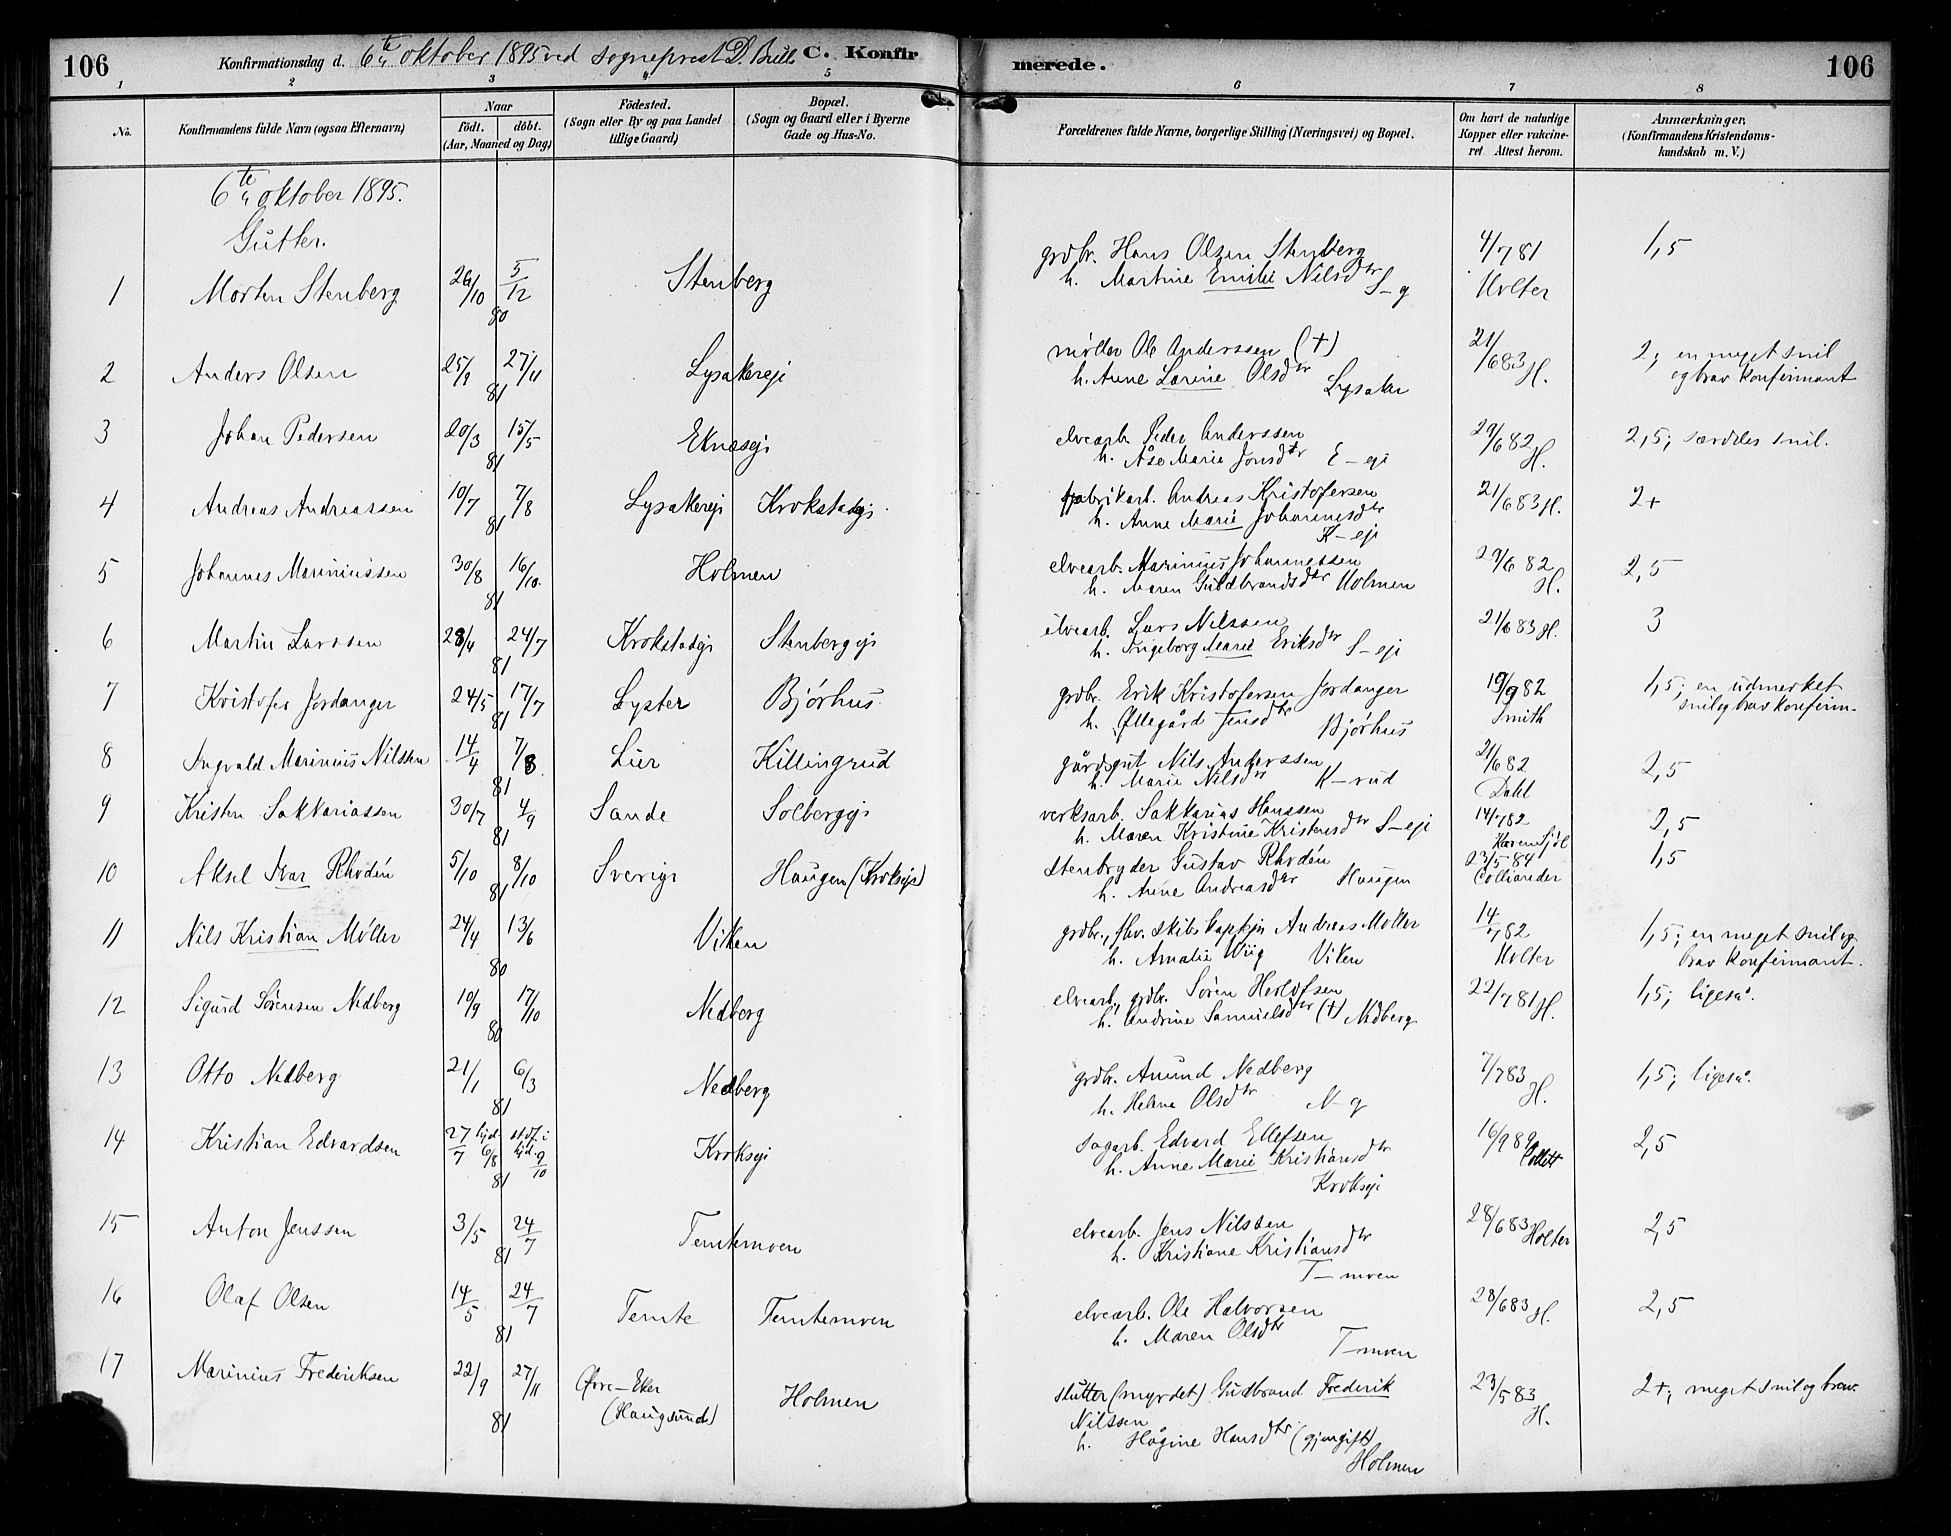 106
Konfirmationsdag d. 6te oktober 1895 ved sogneprest D. Bull
C. Konfirmerede.
106
1 2 3 4 5 6 7 8
No.
Konfirmandens fulde Navn (ogsaa Efternavn)
Naar
født. døbt.
(Aar, Maaned og Dag)
Födested.
(Sogn eller By og paa Landet tillige Gaard)
Bopæl.
(Sogn og Gaard eller i Byerne Gade og Hus-No.
Forældrenes fulde Navne, borgerlige Stilling (Næringsvei) og Bopæl.
Om havt de naturlige Kopper eller vakcineret. Attest herom.
Anmærkninger,
(Konfirmandens Kristendomskundskab m. V.)
6te oktober 1895.
Gutter.
1 Morten Stenberg 26/10 5/12 80 Stenberg grdbr. Hans Olsen Stenberg 4/7 81 1,5
h. Martine Emilie Nilsdtr S-g Holter
2 Anders Olsen 25/9 27/11 81 Lysakereje møller Ole Anderssen (+) 21/6 83 H. 2; en meget snil
h. Anne Lovine Olsdtr Lysaker og brav konfirmant
3 Johan Pedersen 20/3 15/5 81 Eknæsej elvearb. Peder Anderssen 29/6 82 H. 2,5; særdeles snil.
h. Åse Marie Jonsdtr E-eje
4 Andreas Andreassen 10/7 7/8 81 Lysakereje Krokstadeje fabrikarb. Andreas Kristofersen 21/6 83 H. 2+
h. Anne Marie Johannesdtr
K-eje
5 Johannes Mariniussen 30/8 16/10 81 Holmen elvearb. Marinius Johannessen 29/6 82 H. 2,5
h. Maren Guldbrandsdtr Holmen
6 Martin Larssen 28/4 24/7 81 Krokstadeje Stenbergeje elvearb. Lars Nilssen 21/6 83 H. 3
h. Ingeborg Marie Eriksdtr S-eje
7 Kristofer Jordanger 24/5 17/7 81 Lyster Bjørhus grdbr. Erik Kristofersen Jordanger 19/9 82 1,5; en udmerket
h. Øllegård Jensdtr Bjørhus Smith snil og brav konfirm.
8 Ingvald Marinius Nilssen 14/4 7/8 81 Lier Killingrud gårdsgut Nils Anderssen 21/6 82 2,5
h. Marie Nilsdtr K-rud Dahl
9 Kristen Sakkariassen 30/7 4/9 81 Sande Solbergeje verksarb. Sakkarias Hanssen 14/7 82 2,5
h. Maren Kristine Kristensdtr S-eje
10 Aksel Ivar Rhodén 5/10 8/10 81 Sverige Haugen (Krokseje) Stenbryder Gustav Rhodén 23/5 84 1,5
h. Anne Andreasdtr Haugen Colliander
11 Nils Kristian Møller 24/4 13/6 80 Viken grdbr., fhv. skibskaptejn Andreas Møller 14/7 82 1,5; en meget snil og
h. Amalie Wiig Viken Holter brav konfirmant.
12 Sigurd Sørensen Nedberg 10/9 17/10 80 Nedberg elvearb., grdbr. Søren Herlofsen 22/7 81 H. 1,5; ligeså.
h. Andrine Samuelsdtr (+) Nedberg
13 Otto Nedberg 21/1 6/3 81 Nedberg grdbr. Amund Nedberg 7/7 83 H. 1,5; ligeså.
h. Helene Olsdtr N-g
14 Kristian Edvardsen 27/7 hjd. 6/8 stdf. i kid. 9/10 81 Krokseje sagarb. Edvard Ellefsen 16/9 89 Collett 2,5
h. Anne Marie Kristiansdtr
Krokseje
15 Anton Jenssen 3/5 24/7 81 Temtemoen elvearb. Jens Nilssen 28/6 83 Holter 2,5
h. Kristiane Kristiansdtr
T-moen
16 Olaf Olsen 14/5 24/7 81 Temte Temtemoen elvearb. Ole Halvorsen 28/6 83 H. 2,5
h. Maren Olsdtr
T-moen
17 Marinius Frederiksen 22/9 27/11 81 Øvre-Eker Holmen slutter (myrdet) Gudbrand Frederik 23/5 83 H. 2+; meget snil og brav.
(Haugsund) Nilssen
h. Hågine Hansdtr (gjengift)
Holmen